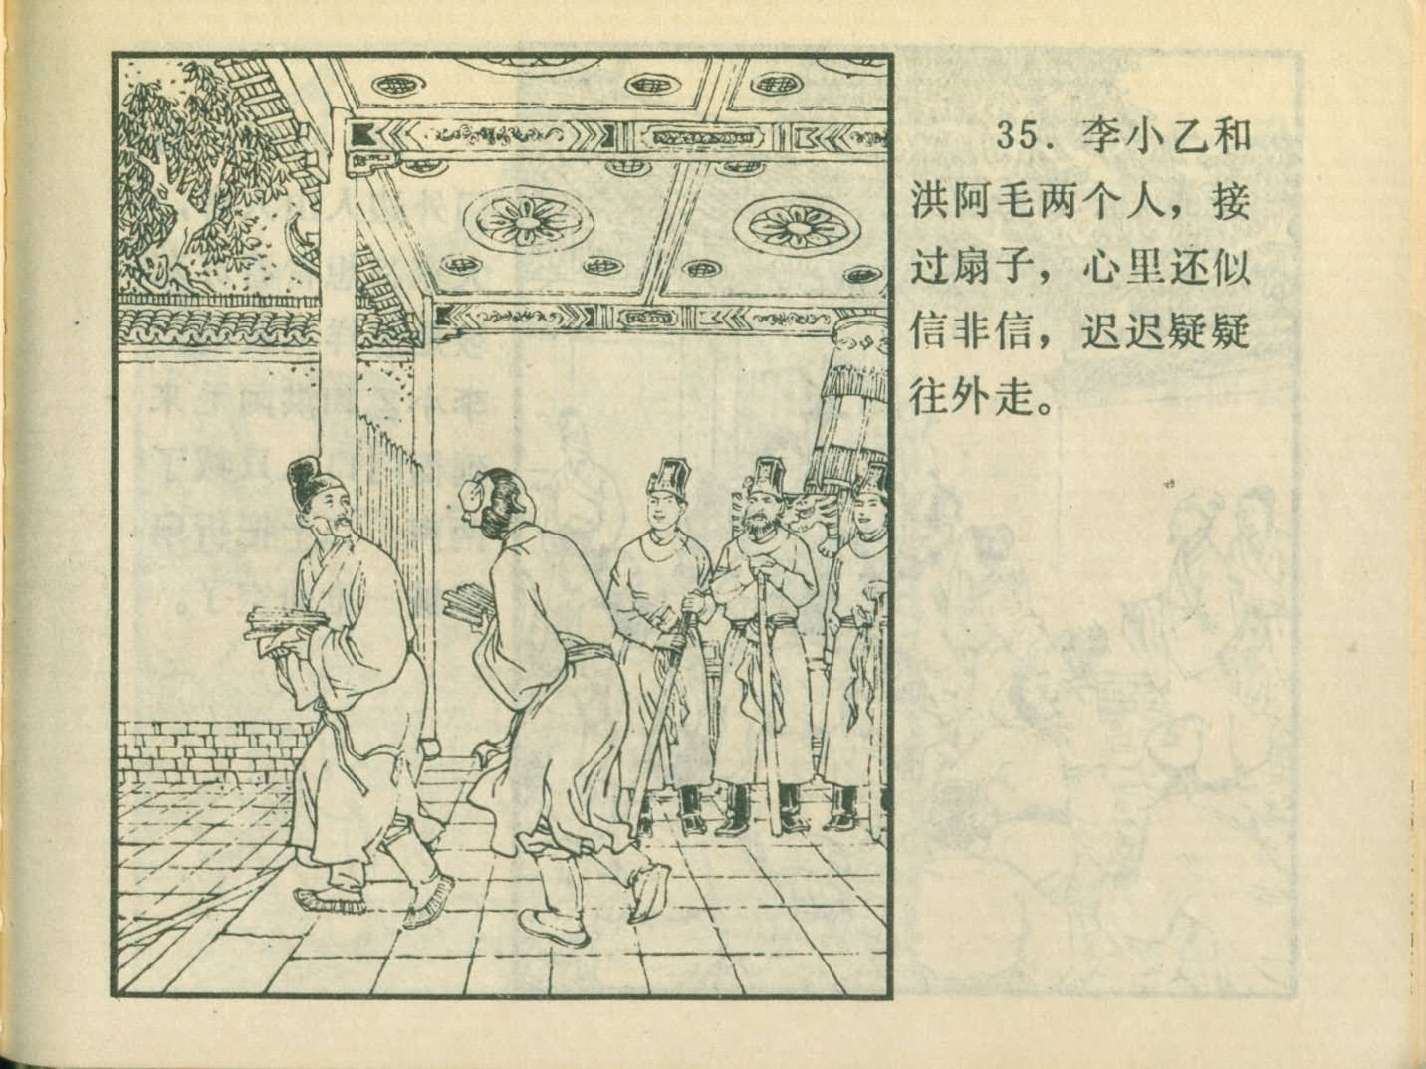 35. 李小乙和
洪阿毛两个人，接
过扇子，心里还似
信非信，迟迟疑疑
往外走。